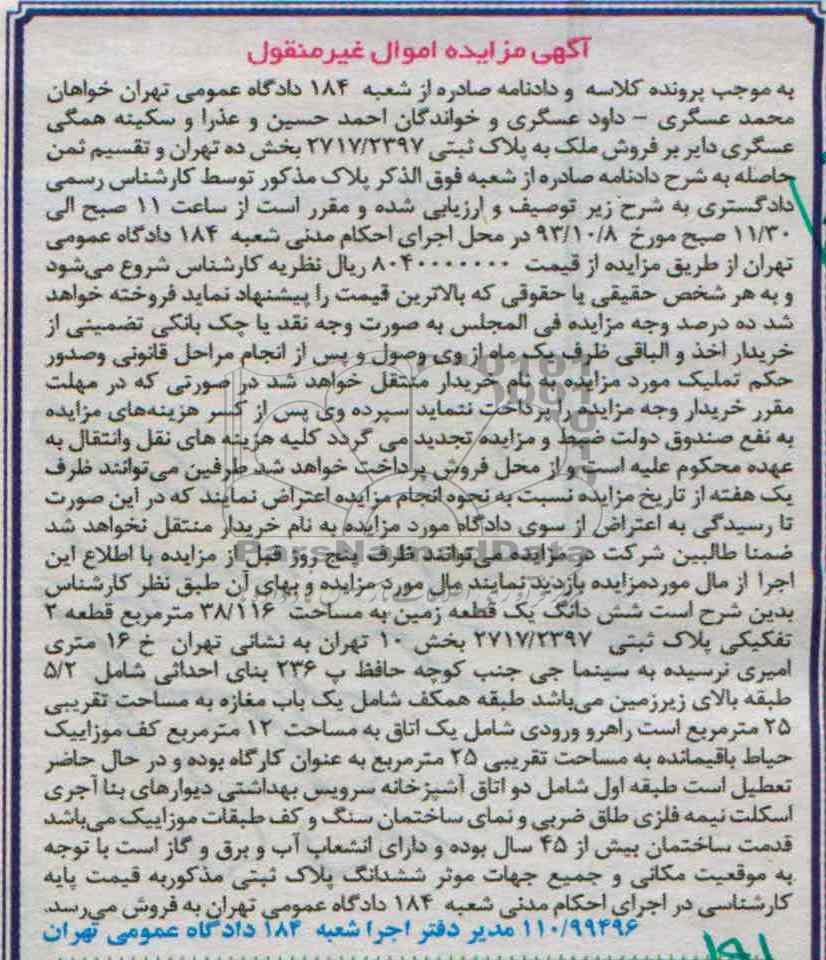 آگهی مزایده اموال غیرمنقول
به موجب پرونده کلاسه و دادنامه صادره از شعبه ۱۸۴ دادگاه عمومی تهران خواهان
محمد عسگری - داود عسگری و خواندگان احمد حسین و عذرا و سکینه همگی
عسگری دایر بر فروش ملک به پلاک ثبتی ۲۷۱۷/۲۳۹۷ بخش ده تهران و تقسیم ثمن
حاصله به شرح دادنامه صادره از شعبه فوق الذکر پلاک مذکور توسط کارشناس رسمی
دادگستری به شرح زیر توصیف و ارزیابی شده و مقرر است از ساعت ۱۱ صبح الی
۱۱/۳۰ صبح مورخ ۹۳/۱۰/۸ در محل اجرای احکام مدنی شعبه ۱۸۴ دادگاه عمومی
تهران از طریق مزایده از قیمت ۸۰۴۰۰۰۰۰۰۰ ریال نظریه کارشناس شروع می‌شود
و به هر شخص حقیقی یا حقوقی که بالاترین قیمت را پیشنهاد نماید فروخته خواهد
شد ده درصد وجه مزایده فی المجلس به صورت وجه نقد یا چک بانکی تضمینی از
خریدار اخذ و الباقی ظرف یک ماه از وی وصول و پس از انجام مراحل قانونی وصدور
حکم تملیک مورد مزایده به نام خریدار منتقل خواهد شد در صورتی که در مهلت
مقرر خریدار وجه مزایده را پرداخت ننماید سپرده وی پس از کسر هزینه‌های مزایده
به نفع صندوق دولت ضبط و مزایده تجدید می گردد کلیه هزینه های نقل وانتقال به
عهده محکوم علیه است و از محل فروش پرداخت خواهد شد طرفین می‌توانند ظرف
یک هفته از تاریخ مزایده نسبت به نحوه انجام مزایده اعتراض نمایند که در این صورت
تا رسیدگی به اعتراض از سوی دادگاه مورد مزایده به نام خریدار منتقل نخواهد شد
ضمنا طالبین شرکت در مزایده می‌توانند ظرف پنج روز قبل از مزایده با اطلاع این
اجرا از مال موردمزایده بازدید نمایند مال مورد مزایده و بهای آن طبق نظر کارشناس
بدین شرح است شش دانگ یک قطعه زمین به مساحت ۳۸/۱۱۶ مترمربع قطعه ۲
تفکیکی پلاک ثبتی ۲۷۱۷/۲۳۹۷ بخش ۱۰ تهران به نشانی تهران خ ۱۶ متری
امیری نرسیده به سینما جی جنب کوچه حافظ پ ۲۳۶ بنای احداثی شامل ۵/۲
طبقه بالای زیرزمین می‌باشد طبقه همکف شامل یک باب مغازه به مساحت تقریبی
۲۵ مترمربع است راهرو ورودی شامل یک اتاق به مساحت ۱۲ مترمربع کف موزاییک
حیاط باقیمانده به مساحت تقریبی ۲۵ مترمربع به عنوان کارگاه بوده و در حال حاضر
تعطیل است طبقه اول شامل دو اتاق آشپزخانه سرویس بهداشتی دیوارهای بنا آجری
اسکلت نیمه فلزی طاق ضربی و نمای ساختمان سنگ و کف طبقات موزاییک می‌باشد
قدمت ساختمان بیش از ۴۵ سال بوده و دارای انشعاب آب و برق و گاز است با توجه
به موقعیت مکانی و جمیع جهات موثر ششدانگ پلاک ثبتی مذکوربه قیمت پایه
کارشناسی در اجرای احکام مدنی شعبه ۱۸۴ دادگاه عمومی تهران به فروش می‌رسد.
۱۱۰/۹۹۴۹۶ مدیر دفتر اجرا شعبه ۱۸۴ دادگاه عمومی تهران
ParsNamadData